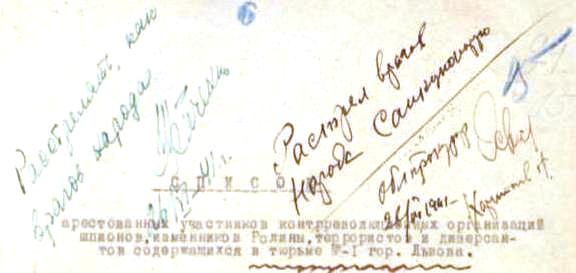 Расстрелять, как
врагов народа
26/VI-41г.
Расстрел врагов
народа Санкционирую
облпрокурор
26/VI 1941-
Харитонов
СПИСОК
арестованных участников контрреволюционных организаций
шпионов, изменников Родины, террористов и диверсан-
тов содержащихся в тюрьме №-1 гор. Львова.